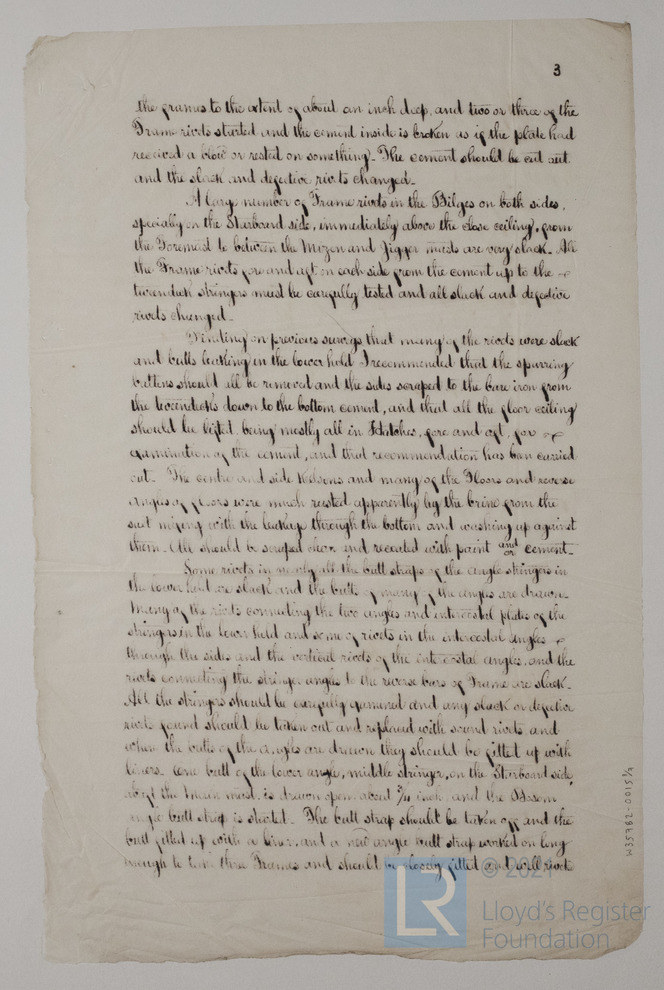 3
the frames to the extent of about an inch deep, and two or three of the
Frame rivets started and the cement inside is broken as if the plate had
received a blow or rested on something. The cement should be cut out
and the slack and defective rivets changed.
A large number of Frame rivets in the Bilges on both sides,
specially on the Starboard side, immediately above the close ceiling, from
the Foremast to between the Mizen and Jigger masts are very slack. All
the Frame rivets fore and aft on each side from the cement up to the
tweendeck stringers must be carefully tested and all slack and defective
rivets changed.
Finding on previous surveys that many of the rivets were slack
and butts leaking in the lower hold I recommended that the sparring
battens should all be removed and the sides scraped to the bare iron from
the tweendecks down to the bottom cement, and that all the floor ceiling
should be lifted, being mostly all in Hatches, fore and aft, for
examination of the cement, and that recommendation has been carried
out. The centre and side Kelsons and many of the Floors and reverse
angles of floors were much rusted apparently by the brine from the
salt mixing with the leakage through the bottom and washing up against
them. All should be scraped clean and recoated with paint and/or cement.
Some rivets in nearly all the butt straps of the angle stringers in
the lower hold are slack and the butts of many of the angles are drawn.
Many of the rivets connecting the two angles and intercostal plates of the
stringers in the lower hold and some of rivets in the intercostal angles
through the sides and the vertical rivets of the intercostal angles, and the
rivets connecting the stringer angles to the reverse bars of Frame are slack.
All the stringers should be carefully examined and any slack or defective
rivets found should be taken out and replaced with sound rivets and
when the butts of the angles are drawn they should be fitted up with
liners. One butt of the lower angle, middle stringer, on the Starboard side,
abaft the Main mast, is drawn open about 3/4 inch, and the Bosom
angle butt strap is The butt strap should be taken off and the
butt fitted up with a liner, and a new angle butt strap worked on long
enough to take three Frames and should be closely fitted and well
W35782-0015 3/9
© 2021
LR
Lloyd's Register
Foundation